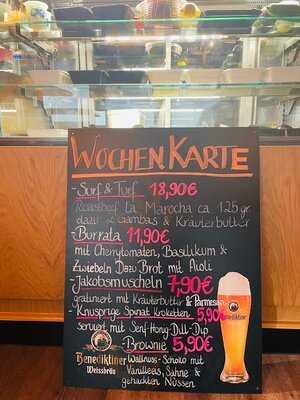 WOCHENKARTE
- Surf & Turf 18,90€
Roastbeef La Marocha ca. 125gr
dazu 2 Gambas & Kräuterbutter
- Burrata 11,90€
mit Cherrytomaten, Basilikum &
Zwiebeln Dazu Brot mit Aioli
- Jakobsmuscheln 7,90€
gratiniert mit Kräuterbutter & Parmesan
- Knusprige Spinat Kroketten 5,90€
serviert mit Senf-Honig-Dill-Dip
- Brownie 5,90€
Walnuss-Schoko mit
Vanilleeis, Sahne &
gehackten Nüssen
Benediktiner
Weissbräu
Benediktiner